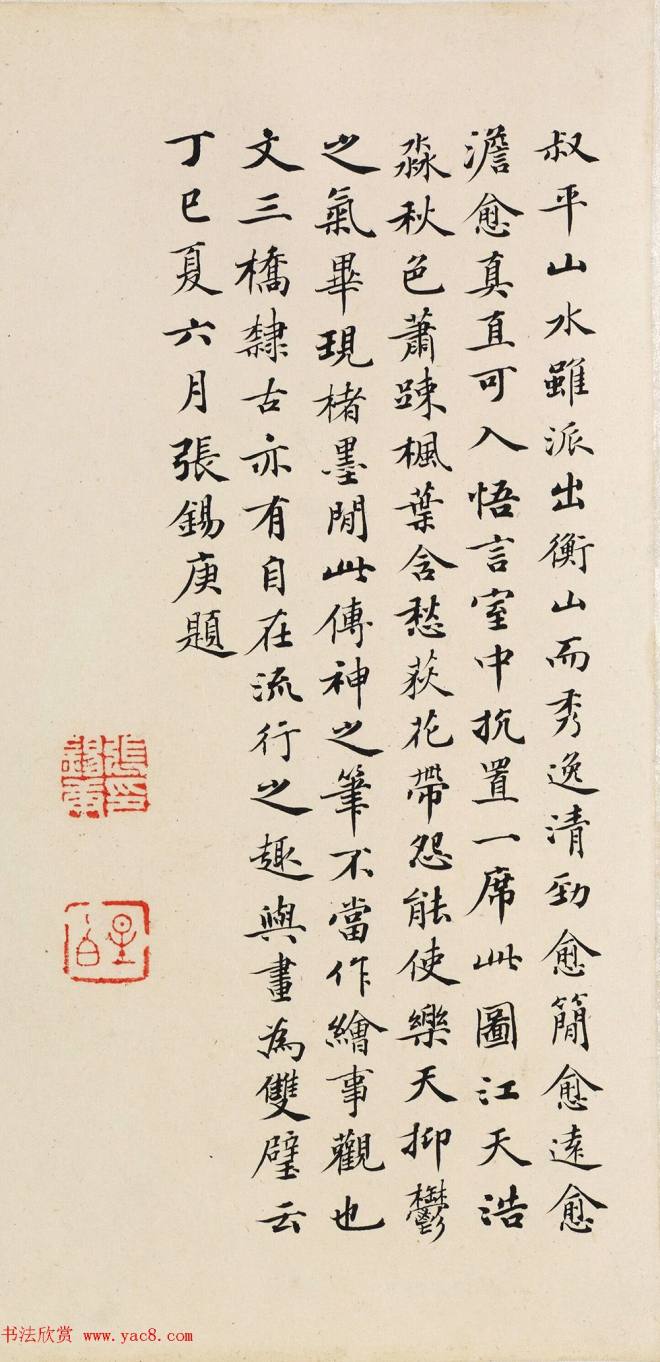 叔平山水雖派出衡山而秀逸清勁愈簡愈遠愈
澹愈真直可入悟言室中抗置一席此圖江天浩
淼秋色蕭踈楓葉含愁荻花帶怨能使樂天抑鬱
之氣畢現楮墨閒此傳神之筆不當作繪事觀也
文三橋隸古亦有自在流行之趣與畫為雙璧云
丁巳夏六月張錫庚題
张印錫庚
星白
书法欣赏 www.yac8.com